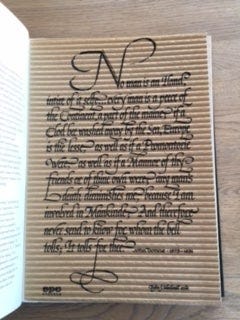 No man is an Iland,
intire of it selfe; every man is a peece of
the Continent, a part of the maine; if a
Clod bee washed away by the Sea, Europe
is the lesse, as well as if a Promontorie
were, as well as if a Mannor of thy
friends or of thine own were; any mans
death diminishes me, because I am
involved in Mankinde; And therefore
never send to know for whom the bell
tolls; It tolls for thee.
John Donne 1573-1631
epc